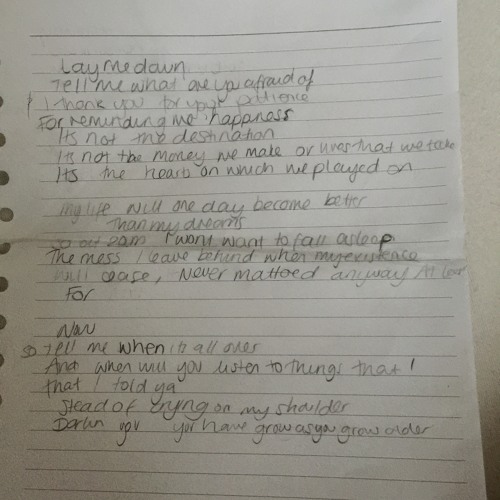 Lay me down
Tell me what are you afraid of
I thank you for your patience
For reminding me happiness
Its not the destination
Its not the money we make or lives that we take
Its the hearts on which we played on
My life will one day become better
than my dreams
I wont want to fall asleep
The mess I leave behind when my existence
will cease, Never mattered anyway At least
For
Now
Tell me when its all over
And when will you listen to things that I
that I told ya
Stead of crying on my shoulder
Darlin you you have grow as you grow older